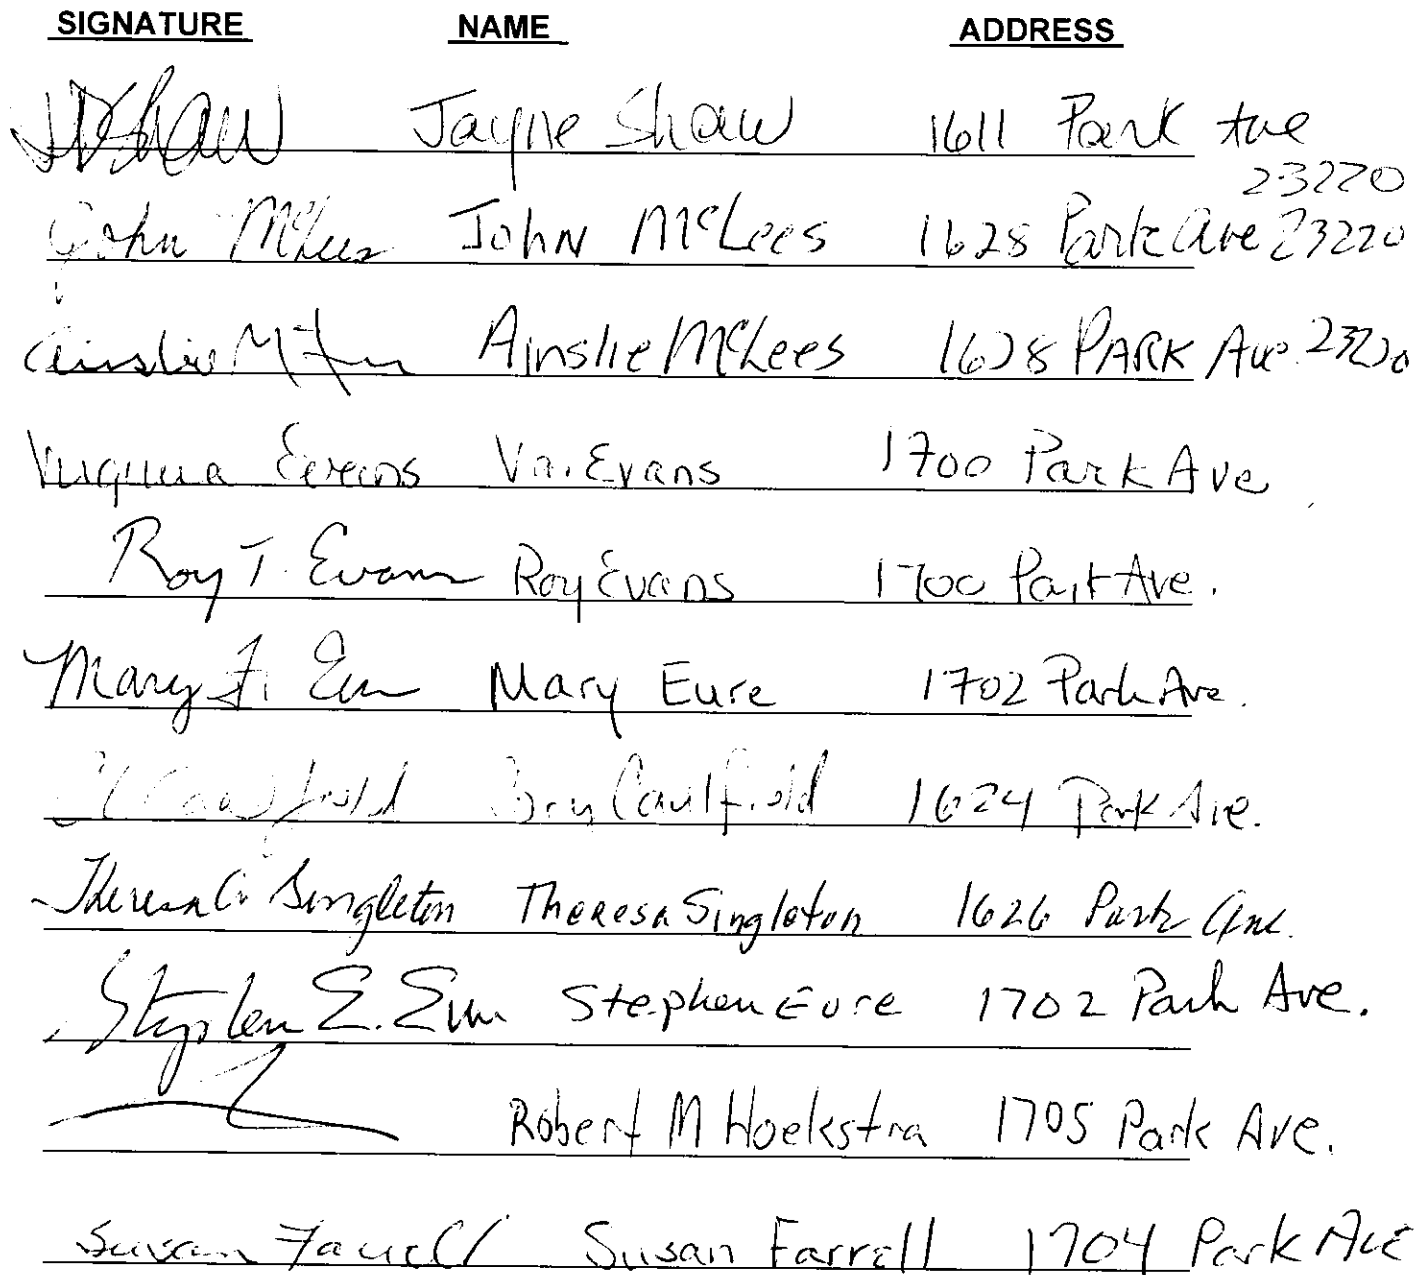 SIGNATURE NAME ADDRESS
JDShaw Jayne Shaw 1611 Park Ave
23220
John McLees John McLees 1628 Park Ave 23220
Ainslie Ainslie McLees 1628 PARK Ave. 23220
Virginia Evans Va. Evans 1700 Park Ave
Roy T. Evans Roy Evans 1700 Park Ave.
Mary F. Eure Mary Eure 1702 Park Ave.
Caulfield Caulfield 1624 Park Ave.
Theresa C. Singleton Theresa Singleton 1626 Park Ave.
Stephen E. Eure Stephen Eure 1702 Park Ave.
Robert M Hoekstra 1705 Park Ave.
Susan Farrell Susan Farrell 1704 Park Ave